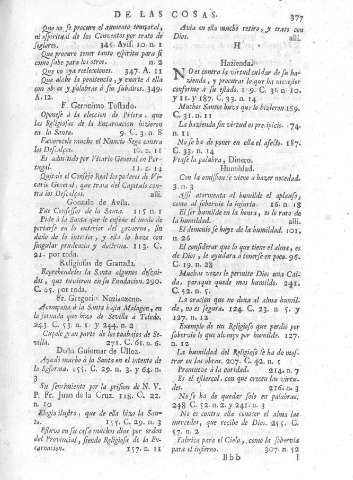 DE LAS COSAS.
377
Que no se procure el aumento temporal,
ni espiritual de los Conventos por trato de
seglares. 345. Avis. 10. n. 1
Que procure tener tanto espiritu para sì
como sabe para los otros. n. 2
Que no aya reelecciones. 347. A. 11
Que alabe la penitencia, y exorte à ella
con obras y palabras à sus subditos. 349.
A. 12.
F. Geronimo Tostado.
Oponese à la eleccion de Priora, que
las Religiosas de la Encarnacion hizieron
en la Santa. 9. C. 3. n. 8
Favorecele mucho el Nuncio Sega contra
los Descalços. 10. n. 11
Es admitido por Vicario General en Portugal.
11. n. 14
Quitale el Consejo Real los poderes de Vicario
General, que traia del Capitulo contra
los Descalços. alli.
Gonzalo de Avila.
Fue Confessor de la Santa. 115. n. 1
Pide à la Santa que le enseñe el modo de
portarse en lo interior del govierno, sin
daño de lo interior, y ella lo haze con
singular prudencia y doctrina. 113. C.
21. por toda.
Religiosas de Granada.
Reprehendeles la Santa algunos descuidos,
que tuvieron en su Fundacion. 290.
C. 65. por toda.
Fr. Gregorio Nazianzeno.
Acompaña à la Santa hasta Malagon, en
la jornada que hizo de Sevilla à Toledo.
243. C. 53. n. 1. y 244. n. 2
Cupole gran parte de los trabajos de Sevilla.
271. C. 61. n. 6.
Doña Guiomar de Ulloa.
Ayudò mucho à la Santa en el intento de
la Reforma. 155. C. 29. n. 3. y 64. n.
3
Su sentimiento por la prision de N. V.
P. Fr. Juan de la Cruz. 118. C. 22.
n. 10
Elogio ilustre, que de ella hizo la Santa.
155. C. 29. n. 3
Estuvo en su casa muchos dias por orden
del Provincial, siendo Religiosa de la Encarnacion.
157. n. 11
Avia en ella mucho retiro, y trato con
Dios. alli.
H
Hazienda.
NO es contra la virtud cuidar de su hazienda,
y procurar lo que ha menester
conforme à su estado. 19. C. 31. n. 10.
y 11. y 187. C. 33. n. 14
Muchos Santos huvo que la hizieron. 159.
C. 31. n. 11
La hazienda sin virtud es precipicio. 74.
n. 11
No se ha de poner en ella el afecto. 187.
C. 33. n. 14
Vease la palabra, Dinero.
Humildad.
Con la ensalza se viene à hazer necedad.
3. n. 3
Assi atormenta al humilde el aplauso,
como al sobervio la injuria. 16. n. 18
El ser humilde en la honra, es lo raro de
la humildad. alli.
El demonio se huye de la humildad. 101.
n. 26
El considerar que lo que tiene el alma, es
de Dios, le ayudara à tenerse en poco. 96.
C. 19. n. 28
Muchas vezes lo permite Dios una Caida,
paraque quede mas humilde. 241.
C. 52. n. 5.
La oracion que no dexa al alma humilde,
no es segura. 124. C. 23. n. 5. y
127. n. 12
Exemplo de un Religioso que perdiò por
sobervio lo que alcançò por humilde. 127.
n. 12
La humildad del Religioso se ha de mostrar
en las obras. 207. C. 42. n. 5
Promueve à la caridad. 214. n. 7
Es el estiercol, con que crecen las virtudes.
216. n. 3
No se ha de quedar solo en palabras.
248. C. 52. n. 2. y 241. n. 3
No es contra ella conocer el alma las
mercedes, que recibe de Dios. 255. C.
57. n. 2
Fabrica para el Cielo, como la sobervia
para el infierno. 307. n. 52
Bbb
I